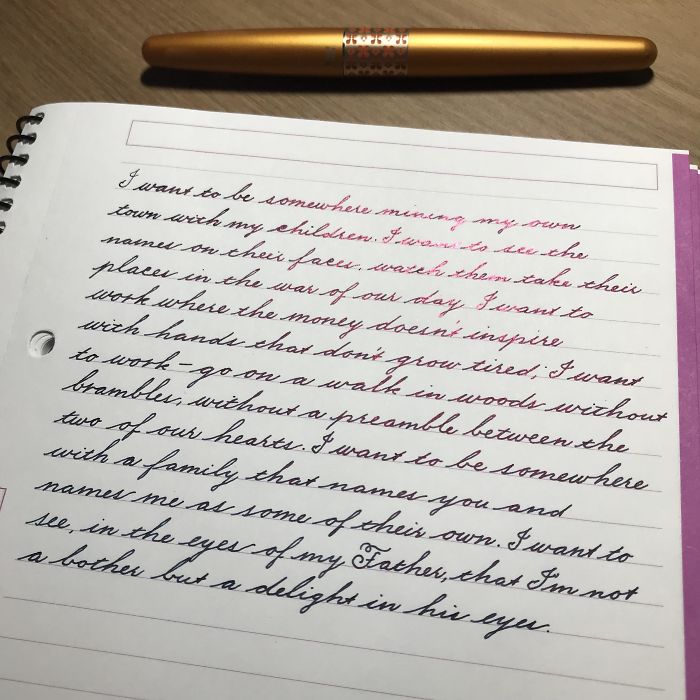 I want to be somewhere mining my own
town with my children. I want to see the
names on their faces, watch them take their
places in the war of our day. I want to
work where the money doesn't inspire
with hands that don't grow tired; I want
to work – go on a walk in woods without
brambles, without a preamble between the
two of our hearts. I want to be somewhere
with a family that names you and
names me as some of their own. I want to
see, in the eyes of my Father, that I'm not
a bother but a delight in his eyes.